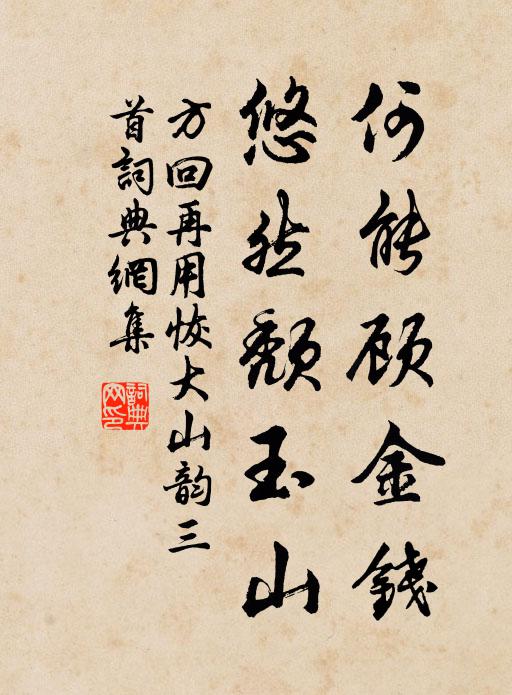 何能顾金錢
悠然頹玉山
方回再用恢大山韵三
首詞典網集
詞典网印